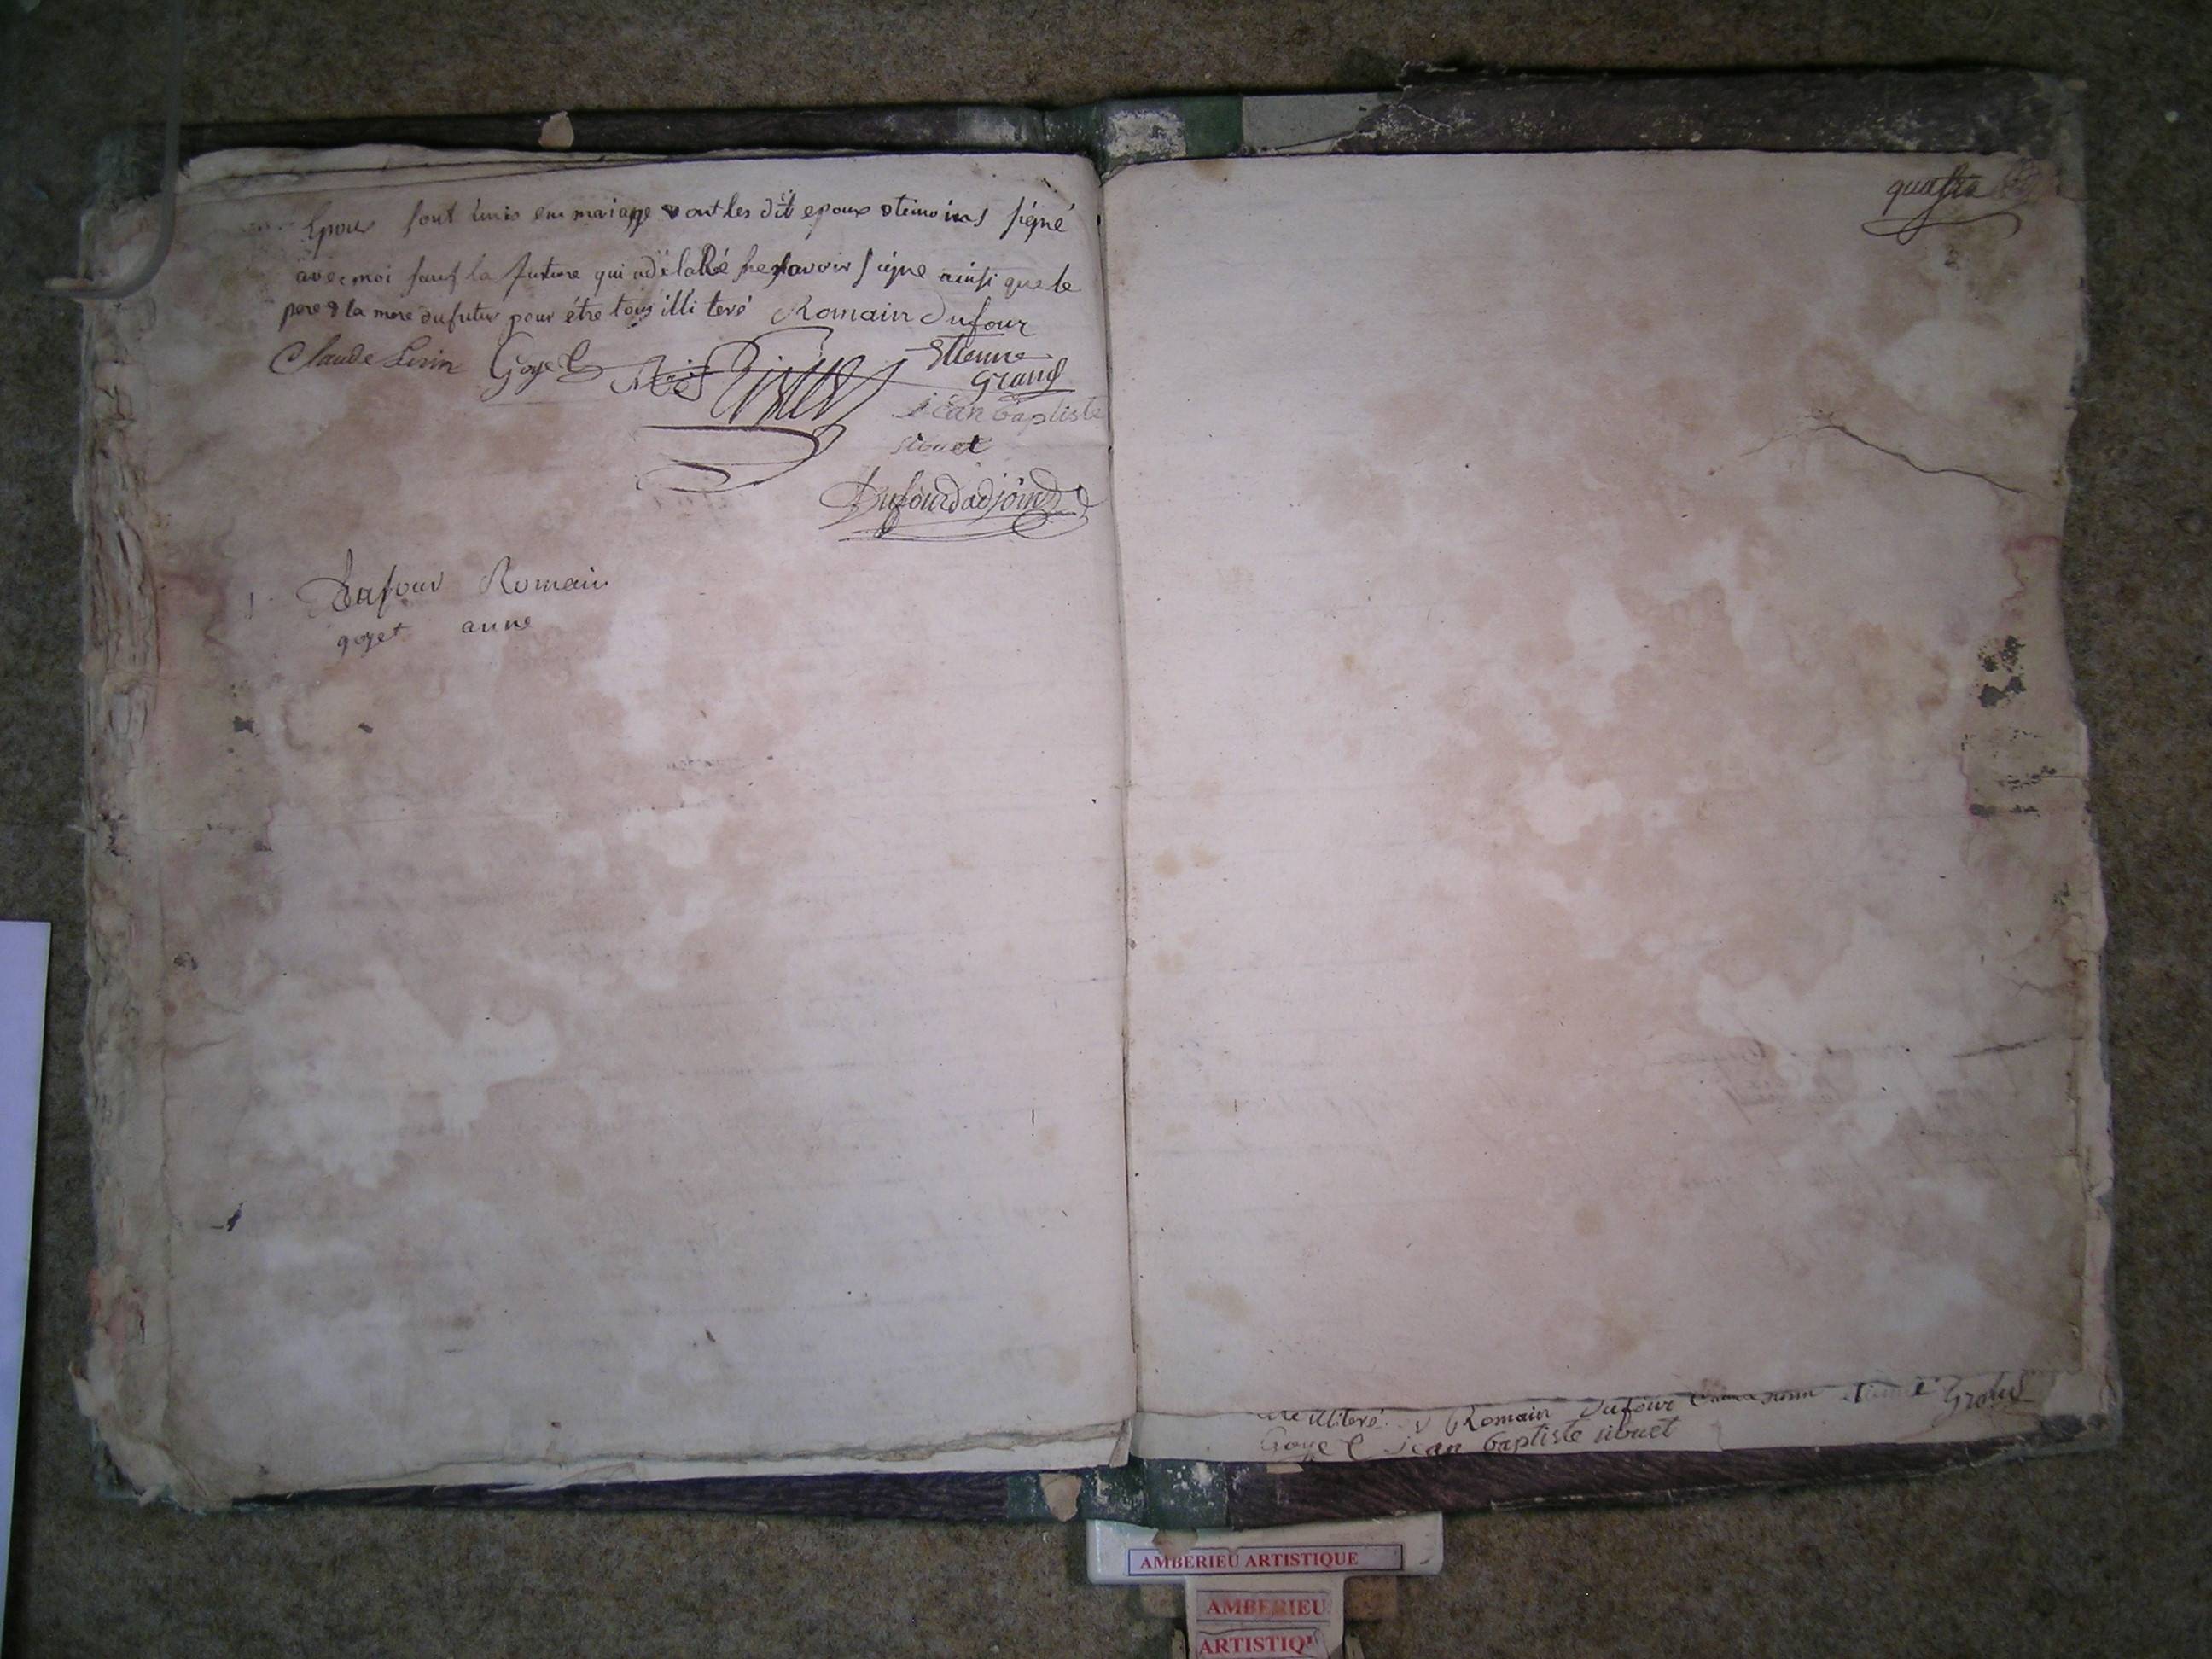 Epoux sont unis en mariage & ont les dit epoux & temoins signé
avec moi sauf la future qui a déclaRé ne savoir signe ainsi que le
pere & la mere du futur pour étre tous illi teré Romain Dufour
Claude Goyet
Etienne
Grand
jean baptiste
sibuet
Dufour adjoint
Dufour Romain
goyet anne
quatre
illiteré Romain Dufour Etienne Grand
Goyet jean baptiste sibuet
AMBERIEU ARTISTIQUE
AMBERIEU
ARTISTIQU